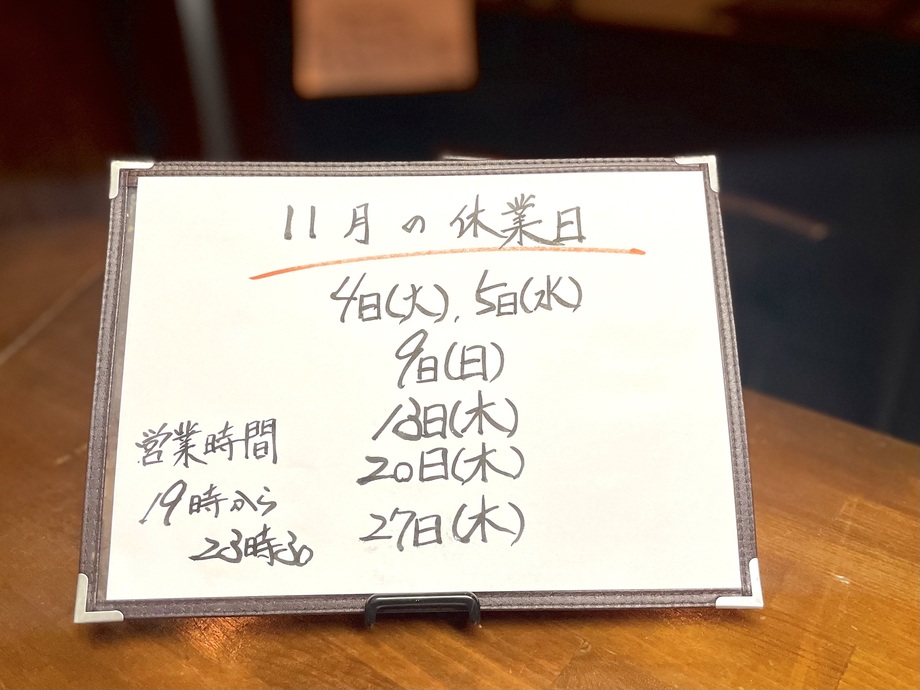 11月の休業日
4日(火)、5日(水)
9日(日)
13日(木)
20日(木)
27日(木)
営業時間
19時から
23時30